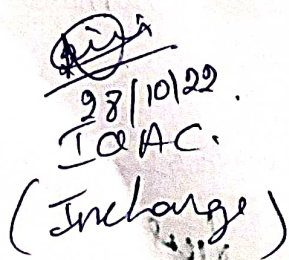 28/10/22.
IQAC.
(Incharge)